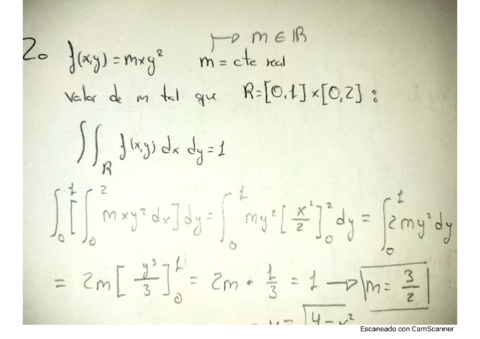 ↳ m ∈ ℝ
2. f(x,y) = mxy² m = cte real
valor de m tal que R = [0,1] × [0,2] :
∬_R f(x,y) dx dy = 1
∫₀¹ [∫₀² mxy² dx] dy = ∫₀¹ my² [x²/2]₀² dy = ∫₀¹ 2my² dy
= 2m [y³/3]₀¹ = 2m · 1/3 = 1 → m = 3/2
Escaneado con CamScanner